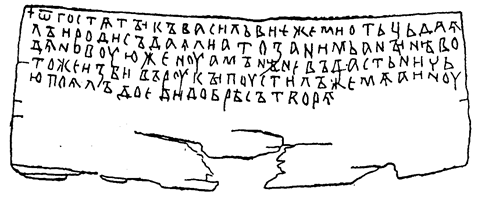 +ѿгостѧтꙑкъвасильвиѥжемиотьцьдаѧ
лъиродисъдаѧлиатозанимьанꙑнѣво
дѧновоуюженоуамънѣневъдастьничь
тожеизбивъроукꙑпоустилъжемѧаиноу
юпоѧлъдоедидобрѣсътворѧ